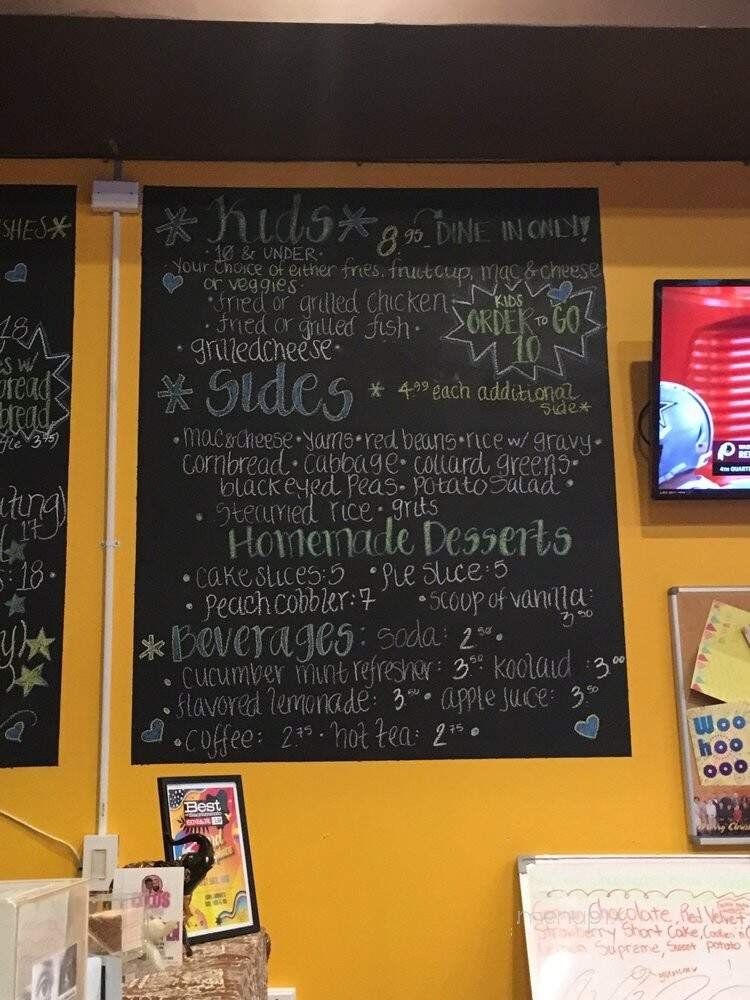 SHES*
18
es w/
bread
bread
3.75)
ating)
17
: 18 •
y)
* Kids * 8.95 DINE IN ONLY!
• 10 & UNDER •
Your choice of either fries, fruit cup, mac & cheese
or veggies.
• fried or grilled chicken
• fried or grilled fish •
• grilledcheese •
KIDS
ORDER TO GO
10
* Sides * 4.99 each additional
side *
• mac&cheese • yams • red beans • rice w/ gravy •
cornbread • cabbage • collard greens •
blackeyed peas • potato salad •
• steamed rice • grits
Homemade Desserts
• cake slices: 5 • Pie slice: 5
• Peach cobbler: 7 • scoop of vanilla:
3.50
* Beverages: soda: 2.50 •
• cucumber mint refresher: 3.50 koolaid : 3.00
• flavored lemonade: 3.50 • apple juice: 3.50
• coffee: 2.75 • hot tea: 2.75 •
4TH QUART
Woo
hoo
ooo
Best
Chocolate, Red Velvet
Strawberry Short Cake, Cookies n C
Supreme, Sweet potato